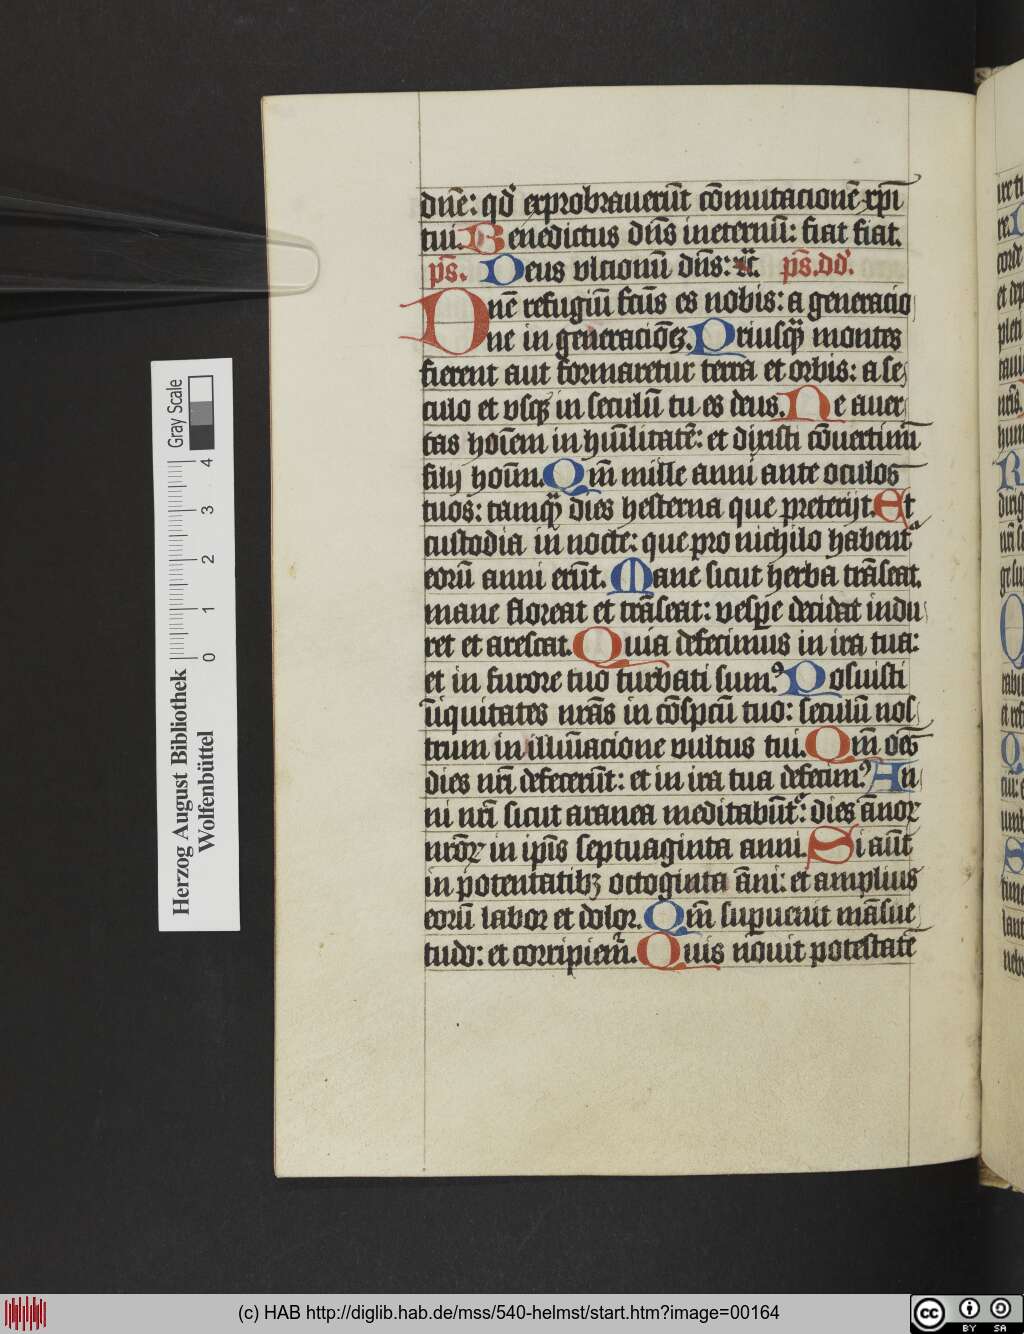 dn̄e: qd̓ exprobrauerūt cōmutacionē xp̄i
tui. Benedictus dn̄s ineternū: fiat fiat.
ps̄. Deus vlcionū dn̄s: ps̄. dd̓.
Dn̄e refugiū fc̄us es nobis: a generacio
ne in generacionē. Priusq̄ montes
fierent aut formaretur terra et orbis: a se
culo et vsq̄ in seculū tu es deus. Ne auer
tas hoīem in hūilitatē: et dixisti cōuertimī
filij hoīm. Qm̄ mille anni ante oculos
tuos: tamq̄ dies hesterna que preterijt. Et
custodia in nocte: que pro nichilo habent᷑
eorū anni erūt. Mane sicut herba trāseat,
mane floreat et trāseat: vesꝑe decidat indu
ret et arescat. Quia defecimus in ira tua:
et in furore tuo turbati sumꝰ. Posuisti
īiquitates nr̄as in cōspcū tuo: seculū nos
trum in illuīacione vultus tui. Qm̄ oēs
dies nr̄i defecerūt: et in ira tua defecimꝰ. An
ni nr̄i sicut aranea meditabūt᷑: dies ānoꝝ
nr̄oꝝ in ip̄is septuaginta anni. Si aūt
in potentatibꝫ octoginta āni: et amplius
eorū labor et dolor. Qm̄ supuenit māsue
tudo: et corripiem᷑. Quis nouit potestatē
Gray Scale
0 1 2 3 4
Herzog August Bibliothek
Wolfenbüttel
(c) HAB http://diglib.hab.de/mss/540-helmst/start.htm?image=00164
cc BY SA